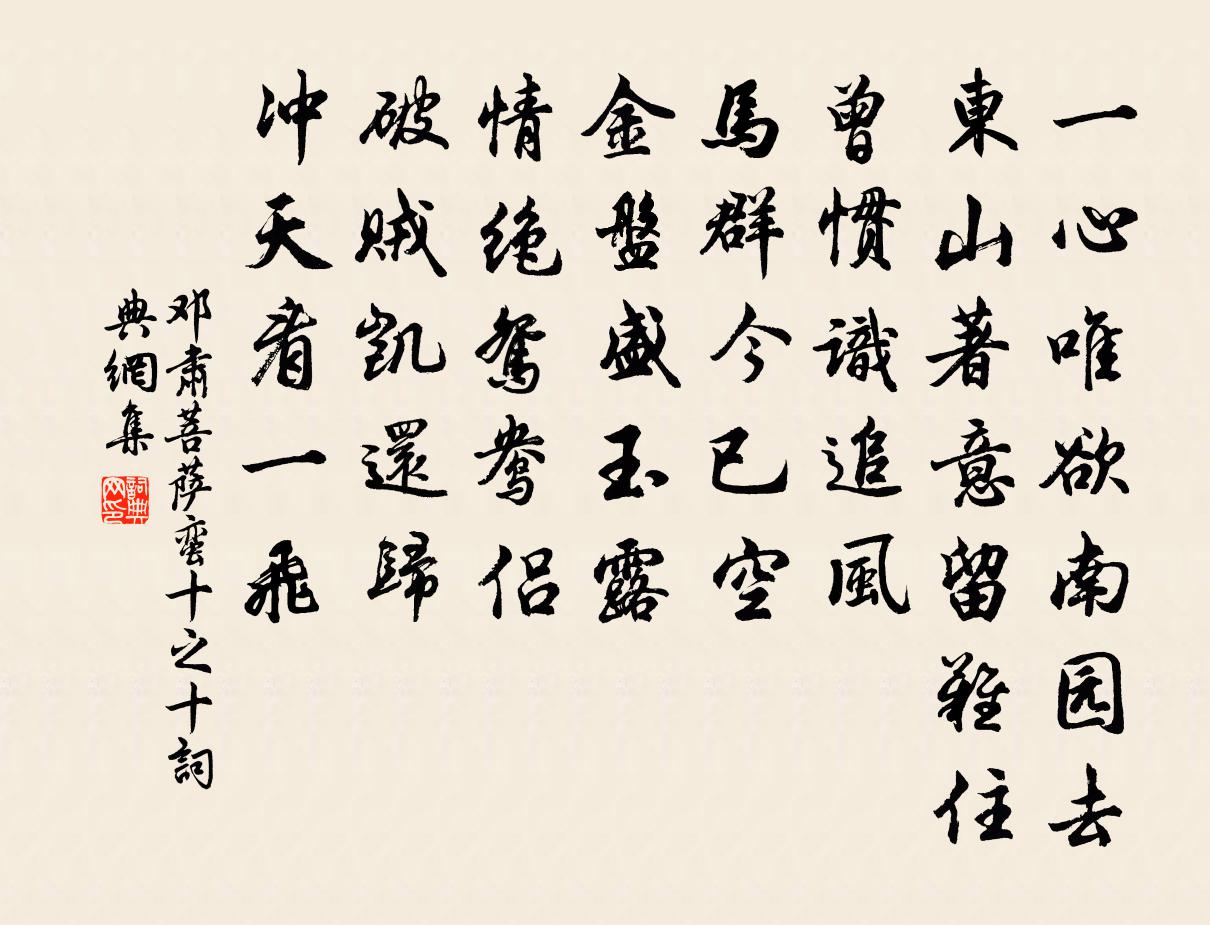 一心唯欲南园去
東山著意留難住
曾慣識追風
馬群今已空
金盤盛玉露
情絶鴛鴦侣
破賊凱還歸
冲天看一飛
邓肅菩萨蛮十之十詞
典網集
詞典网印